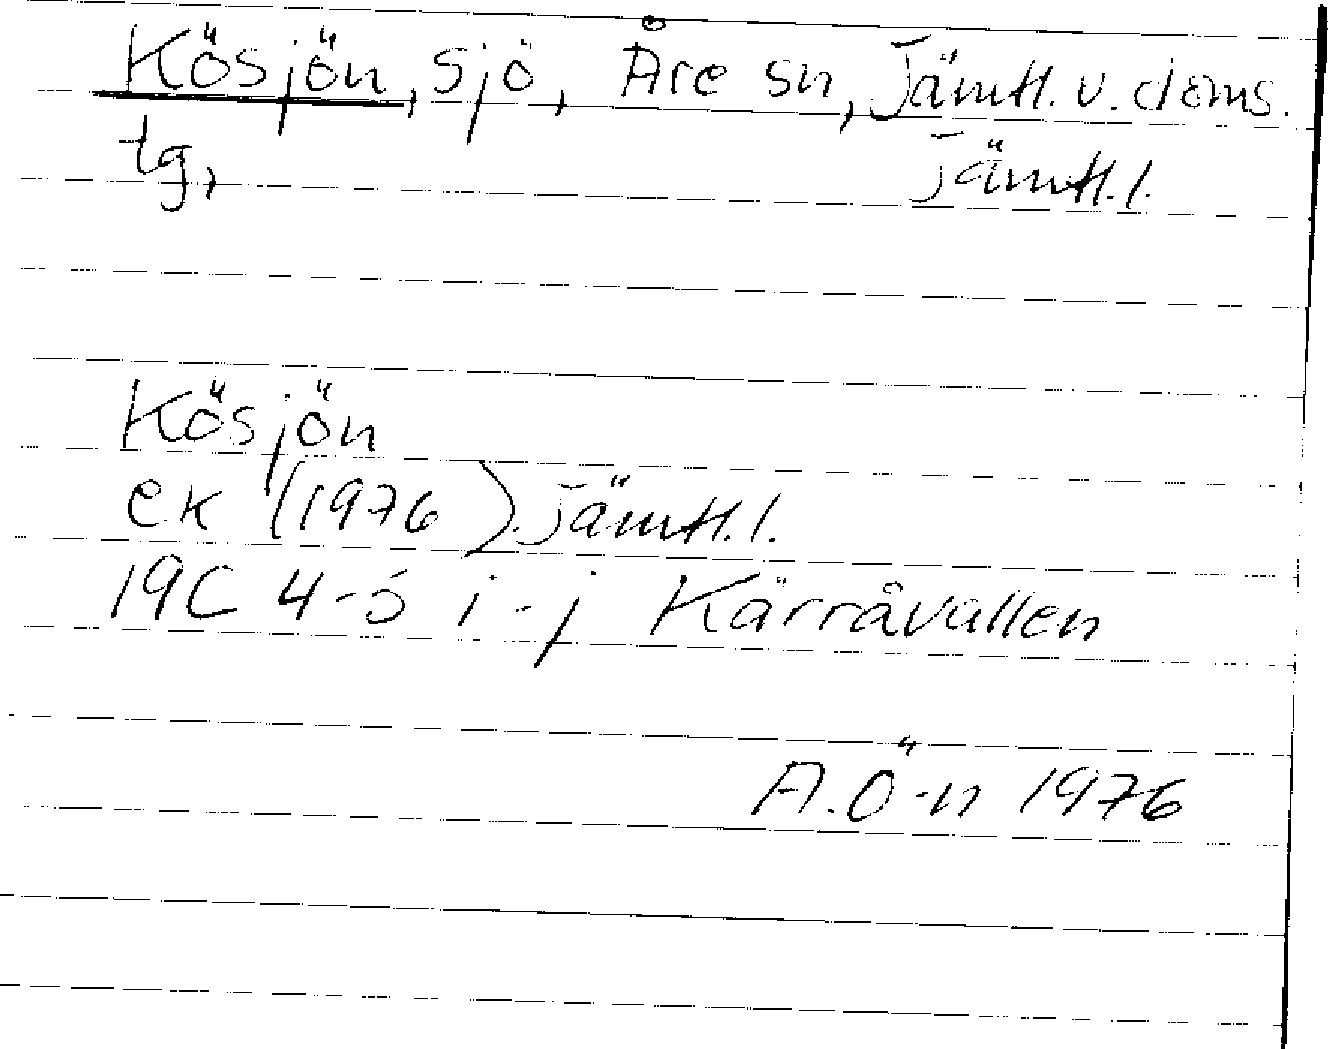 Kösjön, sjö, Åre sn, Jämtl. v. doms.
tg, Jämtl. l.
Kösjön
ek (1976). Jämtl. l.
19C 4-5 i-j Kärråvallen
A. Ö-n 1976